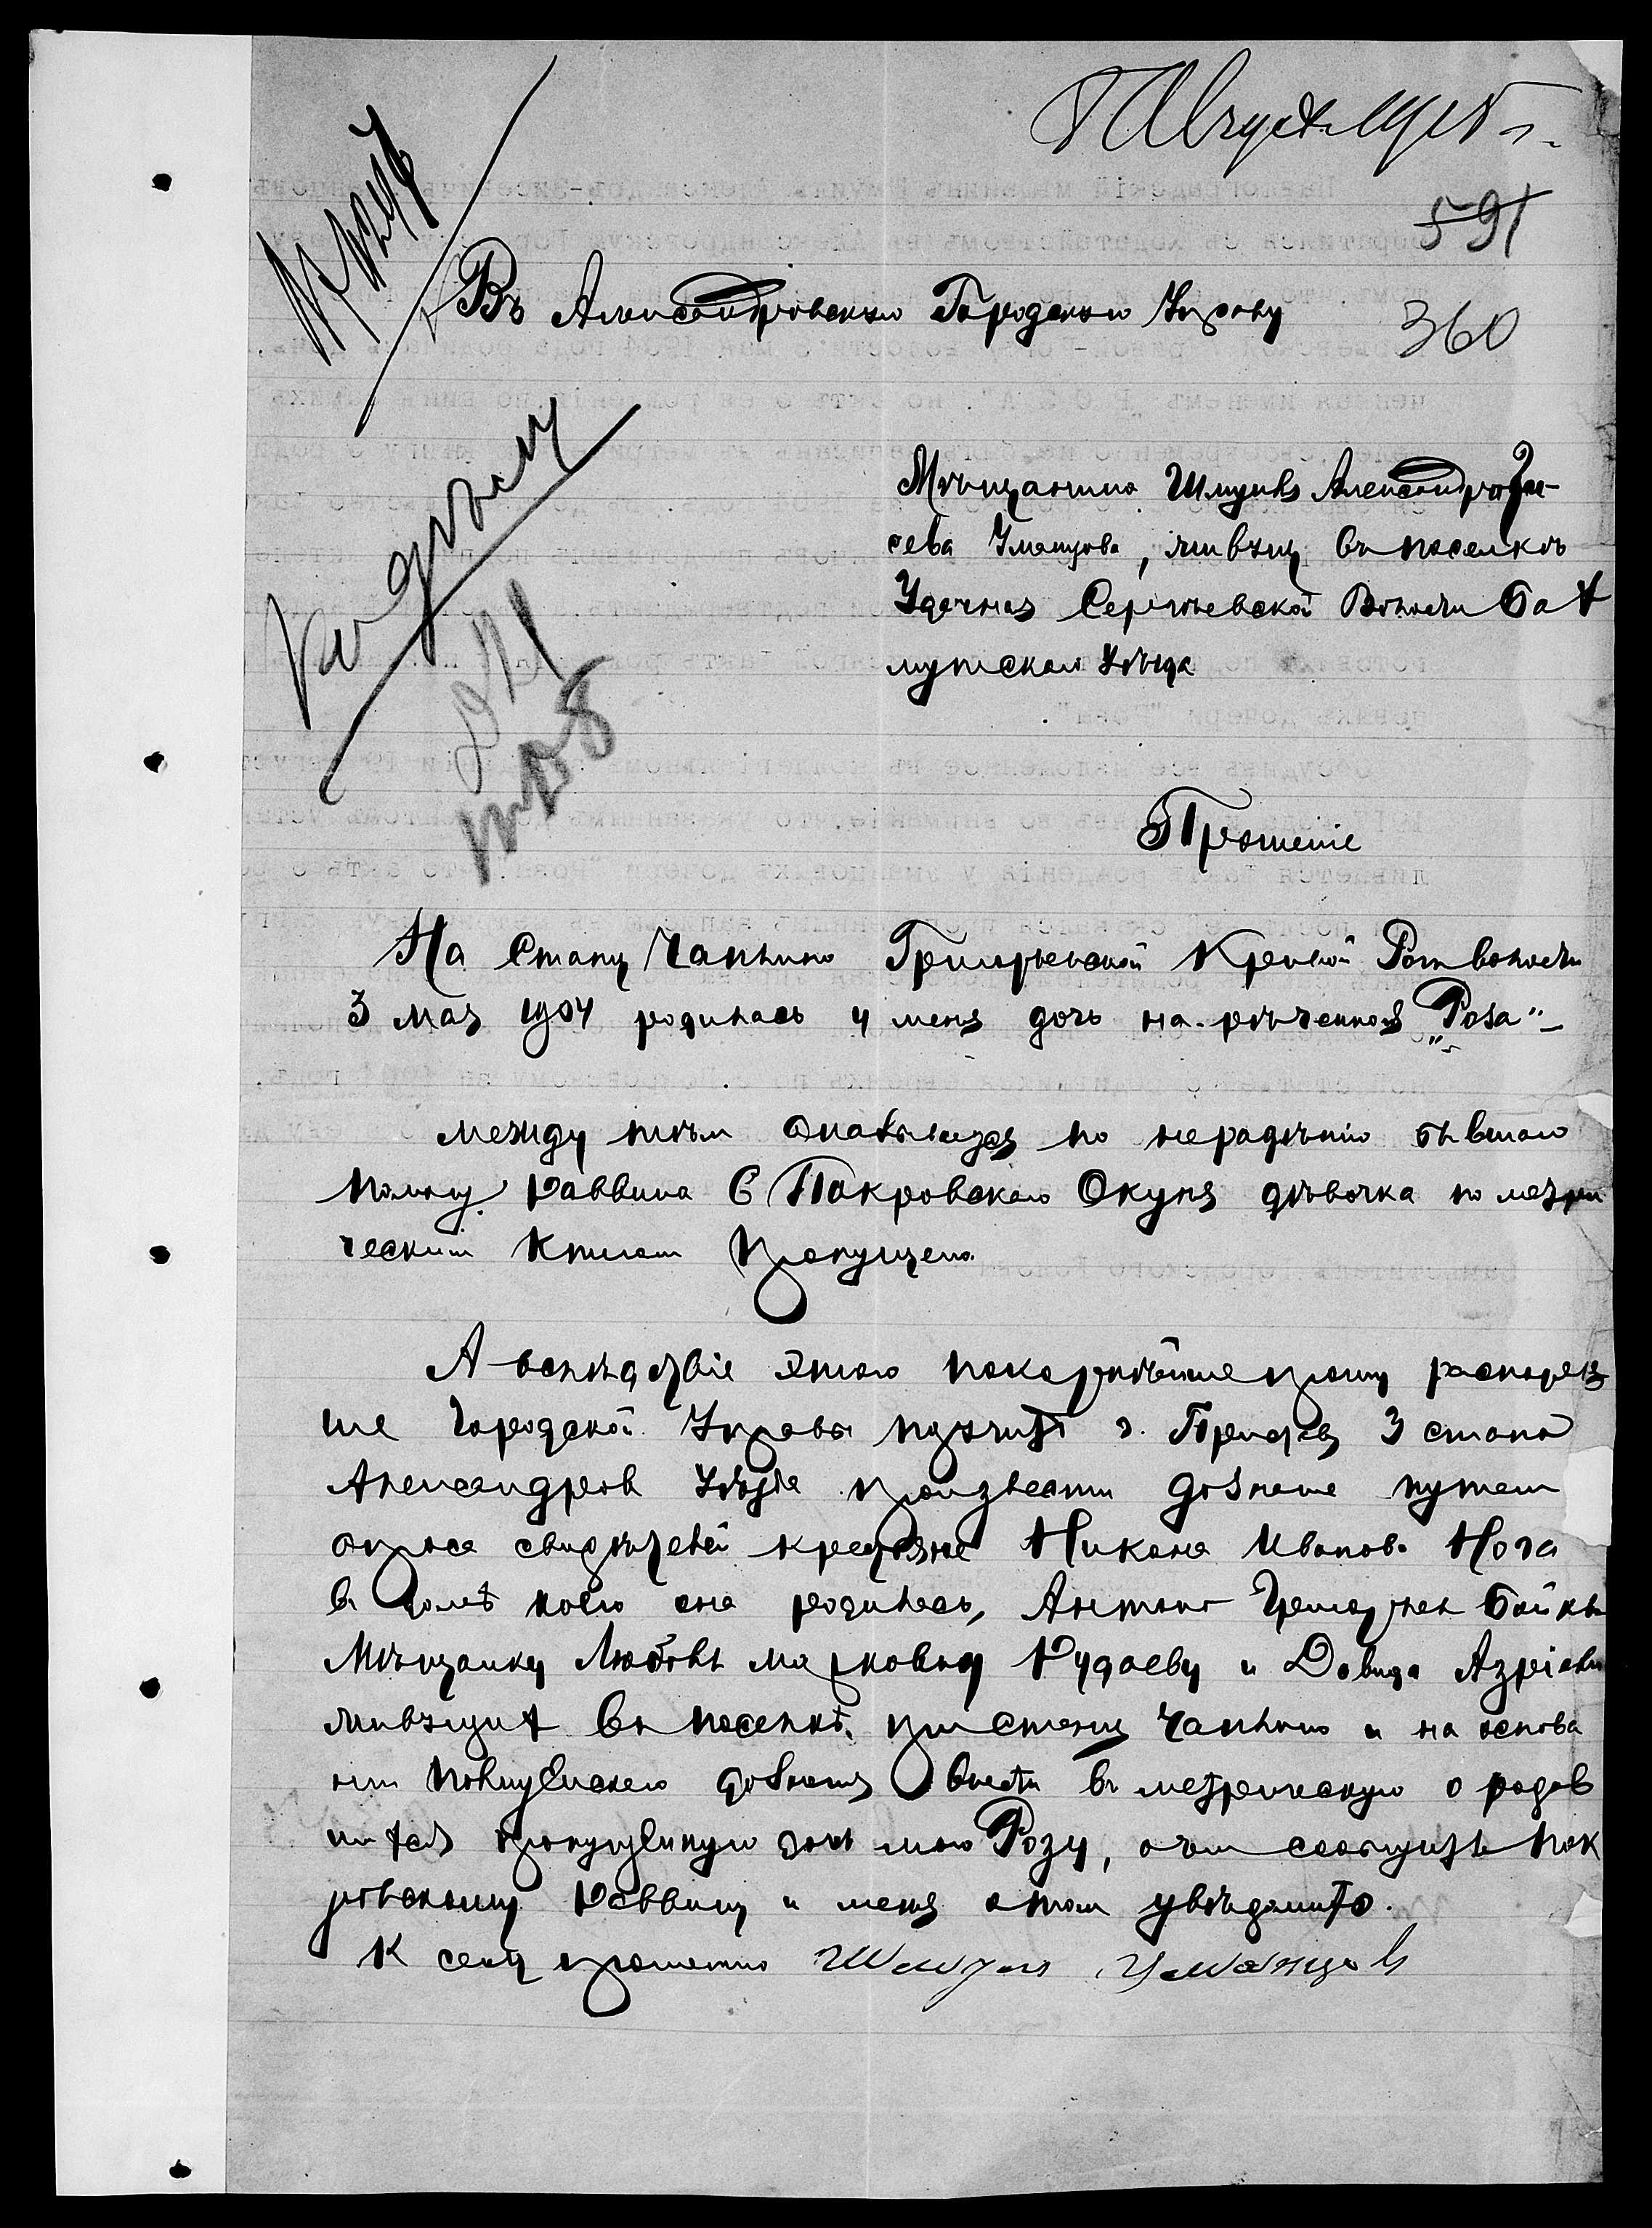 Августа 1915 г.
591
360
Въ Александровскую Городскую Управу
Мѣщанина Шмуиля Александрова Зи-
сева Уманцова, живущ въ поселкѣ
Удачная Сергѣевской Волости Бах
мутскаго Уѣзда
Прошеніе
На Станц Чаплино Григорьевской Кривой Рогъ волости
3 мая 1904 родилась у меня дочь на-рѣченноя „Роза"
между тѣмъ оказывается по нерадѣнію бывшаго
помощ. Раввина С Покровскаго Окуня дѣвочка по метри
ческим Книгам пропущена.
А вслѣдствіе этого покорнѣйше прошу распоряж
ше Городской Управы поручить г. Приставу 3 стана
Александров Уѣзда произвести дознание путем
опроса свидѣтелей крестьяне Никона Иванов. Нога
в домѣ коего она родилась, Антона Григорьев Бойко
Мѣщанку Любовь марковну Рудаеву и Давида Азріель
живущих въ поселкѣ при станц Чаплино и на основа
нии дознания внести въ метрическую о родив
шихся пропущенную дочь мою Розу, о чем сообщить Пок
ровскому Раввину и меня о том увѣдомить.
К сему прошению Шмуиль Уманцов